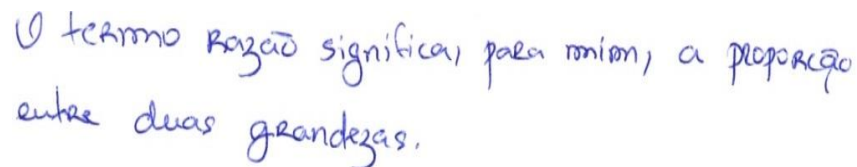 O termo razão significa, para mim, a proporção
entre duas grandezas.